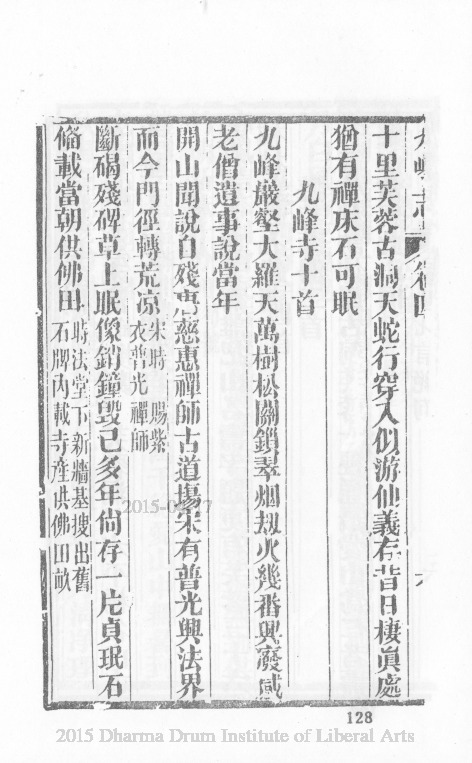 九峰志 卷四
十里芙蓉古洞天蛇行穿入似游仙義存昔日棲眞處
猶有禪床石可眠
九峰寺十首
九峰巖壑大羅天萬樹松關鎖翠烟刼火幾番興廢感
老僧遺事說當年
開山聞說自殘唐慈惠禪師古道場宋有普光興法界
而今門徑轉荒凉宋時賜紫衣普光禪師
斷碣殘碑草上眠像銷鐘毁已多年尙存一片貞珉石
偹載當朝供佛田時法堂下新牆基搜出舊石牌內載寺産供佛田畝
128
2015 Dharma Drum Institute of Liberal Arts